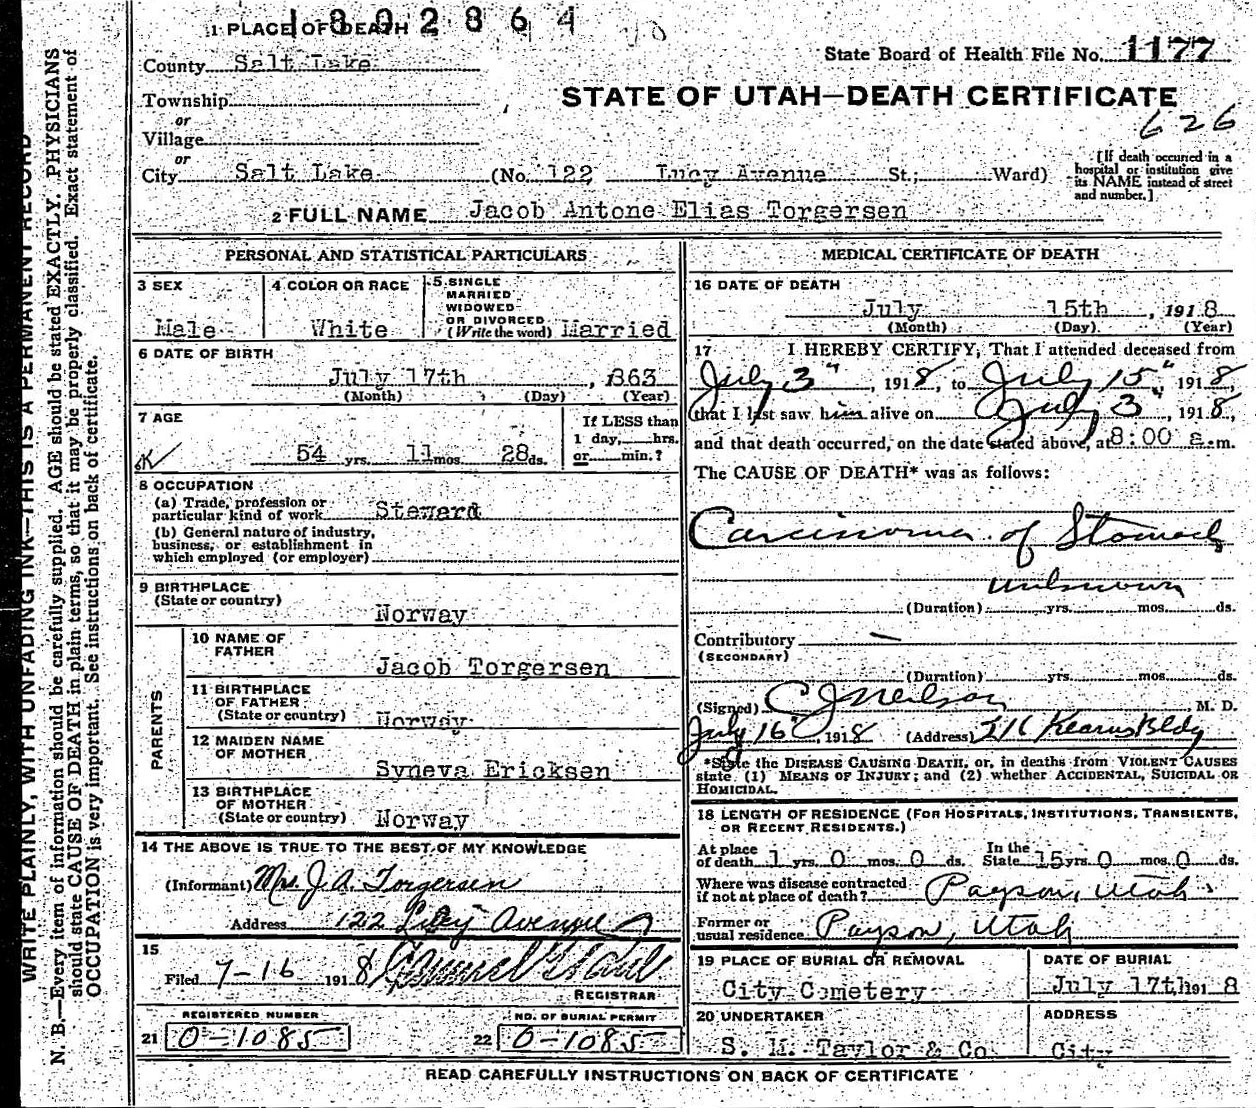 1802864
1 PLACE OF DEATH
State Board of Health File No. 1177
County Salt Lake
STATE OF UTAH—DEATH CERTIFICATE
Township
626
or
Village
or
City Salt Lake (No. 122 Lucy Avenue St.; Ward)
[If death occurred in a
hospital or institution give
its NAME instead of street
and number.]
2 FULL NAME Jacob Antone Elias Torgersen
PERSONAL AND STATISTICAL PARTICULARS
3 SEX
Male
4 COLOR OR RACE
White
5 SINGLE
MARRIED
WIDOWED
OR DIVORCED
(Write the word) Married
6 DATE OF BIRTH
July 17th, 1863
(Month) (Day) (Year)
7 AGE
OK
54 yrs. 11 mos. 28 ds.
If LESS than
1 day, hrs.
or min.?
8 OCCUPATION
(a) Trade, profession or
particular kind of work Steward
(b) General nature of industry,
business, or establishment in
which employed (or employer)
9 BIRTHPLACE
(State or country)
Norway
PARENTS
10 NAME OF
FATHER
Jacob Torgersen
11 BIRTHPLACE
OF FATHER
(State or country) Norway
12 MAIDEN NAME
OF MOTHER
Syneva Ericksen
13 BIRTHPLACE
OF MOTHER
(State or country) Norway
14 THE ABOVE IS TRUE TO THE BEST OF MY KNOWLEDGE
(Informant) Mrs J. A. Torgersen
Address 122 Lucy Avenue
15
Filed 7-16 1918
REGISTRAR
REGISTERED NUMBER
21 0-1085
NO. OF BURIAL PERMIT
22 0-1085
MEDICAL CERTIFICATE OF DEATH
16 DATE OF DEATH
July 15th, 1918
(Month) (Day) (Year)
17 I HEREBY CERTIFY, That I attended deceased from
July 3", 1918, to July 15", 1918,
that I last saw him alive on July 3, 1918,
and that death occurred, on the date stated above, at 8:00 a.m.
The CAUSE OF DEATH* was as follows:
Carcinoma of Stomach
unknown
(Duration) yrs. mos. ds.
Contributory —
(SECONDARY)
(Duration) yrs. mos. ds.
(Signed) C J Neilson M. D.
July 16", 1918 (Address) Kearns Bldg
*State the DISEASE CAUSING DEATH, or, in deaths from VIOLENT CAUSES
state (1) MEANS OF INJURY; and (2) whether ACCIDENTAL, SUICIDAL OR
HOMICIDAL.
18 LENGTH OF RESIDENCE (FOR HOSPITALS, INSTITUTIONS, TRANSIENTS,
OR RECENT RESIDENTS.)
At place
of death 1 yrs. 0 mos. 0 ds.
In the
State 15 yrs 0 mos. 0 ds.
Where was disease contracted
if not at place of death? Payson, Utah
Former or
usual residence Payson, Utah
19 PLACE OF BURIAL OR REMOVAL
City Cemetery
DATE OF BURIAL
July 17th 1918
20 UNDERTAKER
S. M. Taylor & Co
ADDRESS
City
READ CAREFULLY INSTRUCTIONS ON BACK OF CERTIFICATE
WRITE PLAINLY, WITH UNFADING INK—THIS IS A PERMANENT RECORD
N. B.—Every item of information should be carefully supplied. AGE should be stated EXACTLY. PHYSICIANS
should state CAUSE OF DEATH in plain terms, so that it may be properly classified. Exact statement of
OCCUPATION is very important. See instructions on back of certificate.